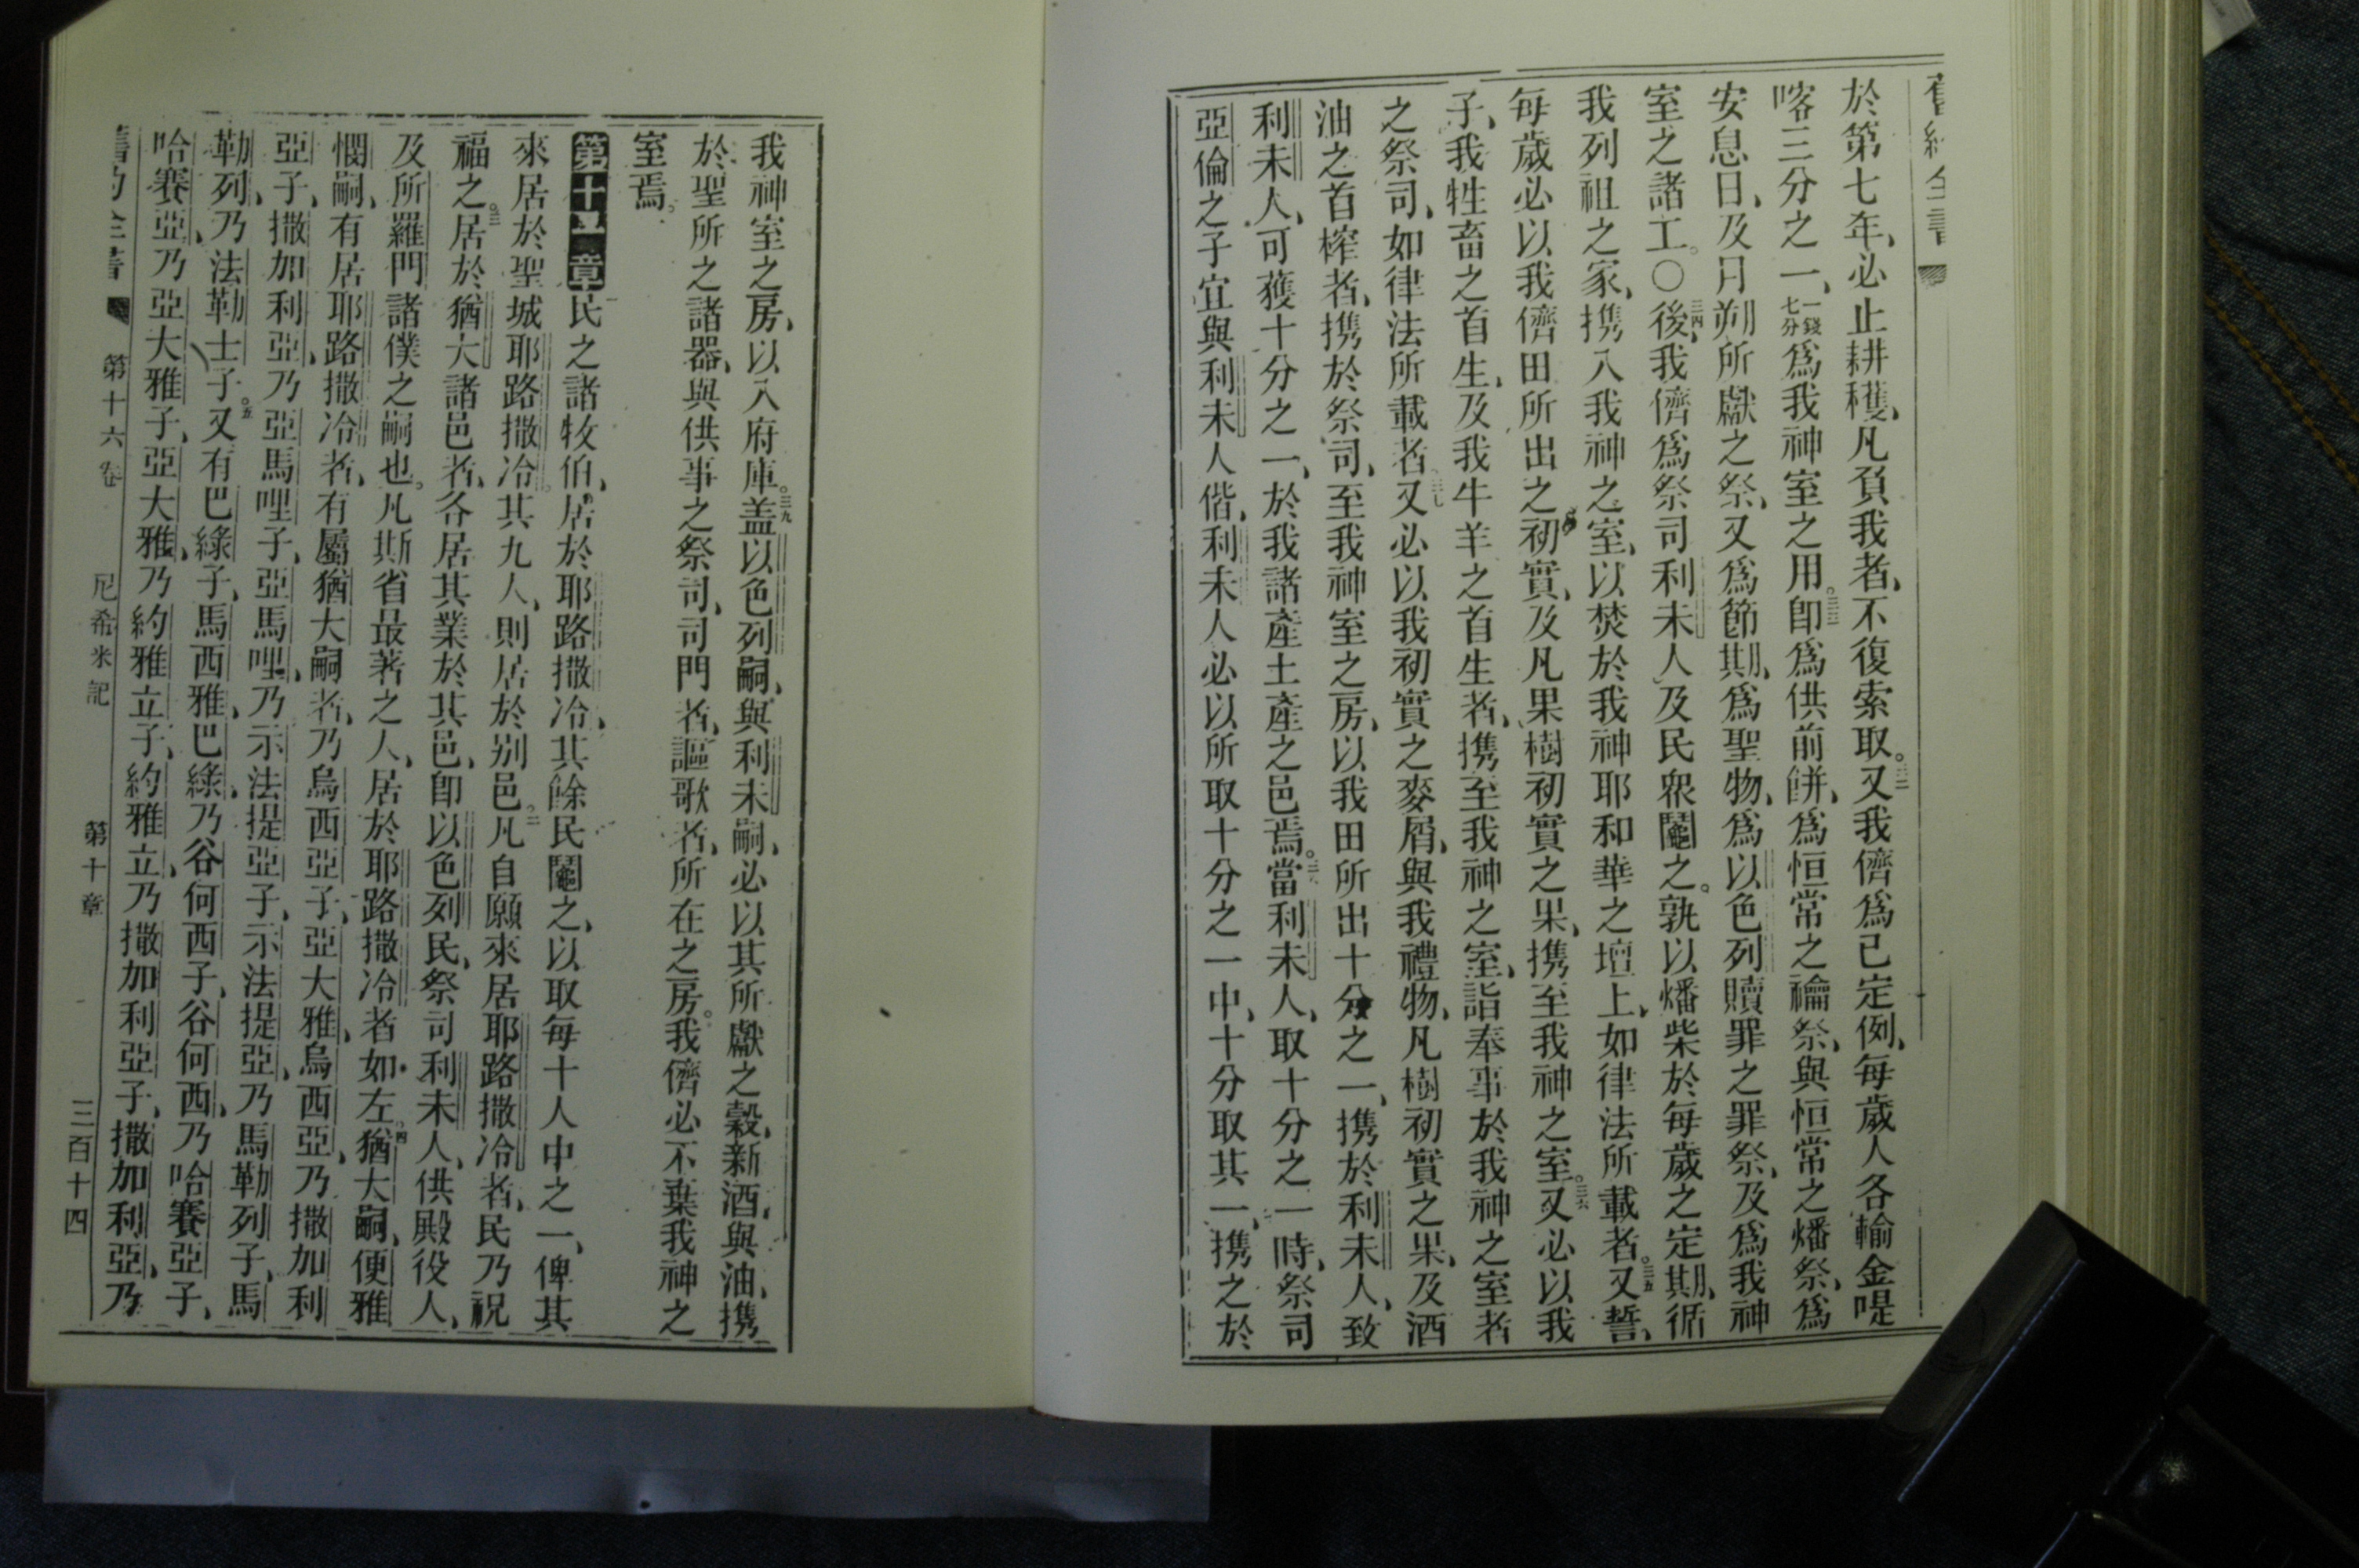 舊約全書
於第七年、必止耕穫、凡負我者、不復索取。三二又我儕爲己定例、每歲人各輸金㖷
喀三分之一、一錢七分爲我神室之用。三三卽爲供前餅、爲恒常之禴祭、與恒常之燔祭、爲
安息日、及月朔所獻之祭、又爲節期、爲聖物、爲以色列贖罪之罪祭、及爲我神
室之諸工。〇三四後、我儕爲祭司利未人及民衆鬮之。孰以燔柴於每歲之定期、循
我列祖之家、携入我神之室、以焚於我神耶和華之壇上、如律法所載者。三五又誓、
每歲必以我儕田所出之初實、及凡果樹初實之果、携至我神之室。三六又必以我
子、我牲畜之首生、及我牛羊之首生者、携至我神之室、詣奉事於我神之室者
之祭司、如律法所載者。三七又必以我初實之麥屑、與我禮物、凡樹初實之果、及酒
油之首榨者、携於祭司、至我神室之房、以我田所出十分之一、携於利未人、致
利未人、可獲十分之一、於我諸產土產之邑焉。三八當利未人、取十分之一時、祭司
亞倫之子宜與利未人偕、利未人必以所取十分之一中、十分取其一、携之於
我神室之房、以入府庫。三九盖以色列嗣、與利未嗣、必以其所獻之穀、新酒、與油、携
於聖所之諸器、與供事之祭司、司門者、謳歌者、所在之房。我儕必不棄我神之
室焉。
第十一章民之諸牧伯、居於耶路撒冷、其餘民鬮之、以取每十人中之一、俾其
來居於聖城耶路撒冷。其九人、則居於别邑。二凡自願來居耶路撒冷者、民乃祝
福之。三居於猶大諸邑者、各居其業於其邑、卽以色列民、祭司利未人、供殿役人、
及所羅門諸僕之嗣也。凡斯省最著之人、居於耶路撒冷者如左。四猶大嗣、便雅
憫嗣、有居耶路撒冷者、有屬猶大嗣者、乃烏西亞子、亞大雅、烏西亞、乃撒加利
亞子、撒加利亞、乃亞馬哩子、亞馬哩、乃示法提亞子、示法提亞、乃馬勒列子、馬
勒列、乃法勒士子。五又有巴綠子、馬西雅、巴綠、乃谷何西子、谷何西、乃哈賽亞子、
哈賽亞、乃亞大雅子、亞大雅、乃約雅立子、約雅立、乃撒加利亞子、撒加利亞、乃
舊約全書 第十六卷 尼希米記 第十章 三百十四